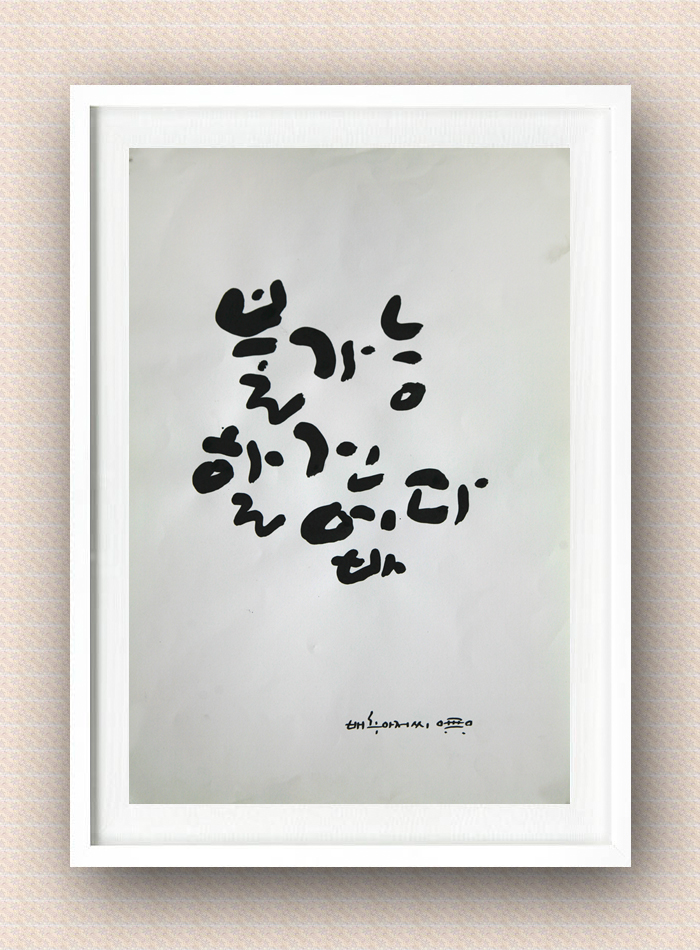 불가능
할 건 없다
배추아저씨